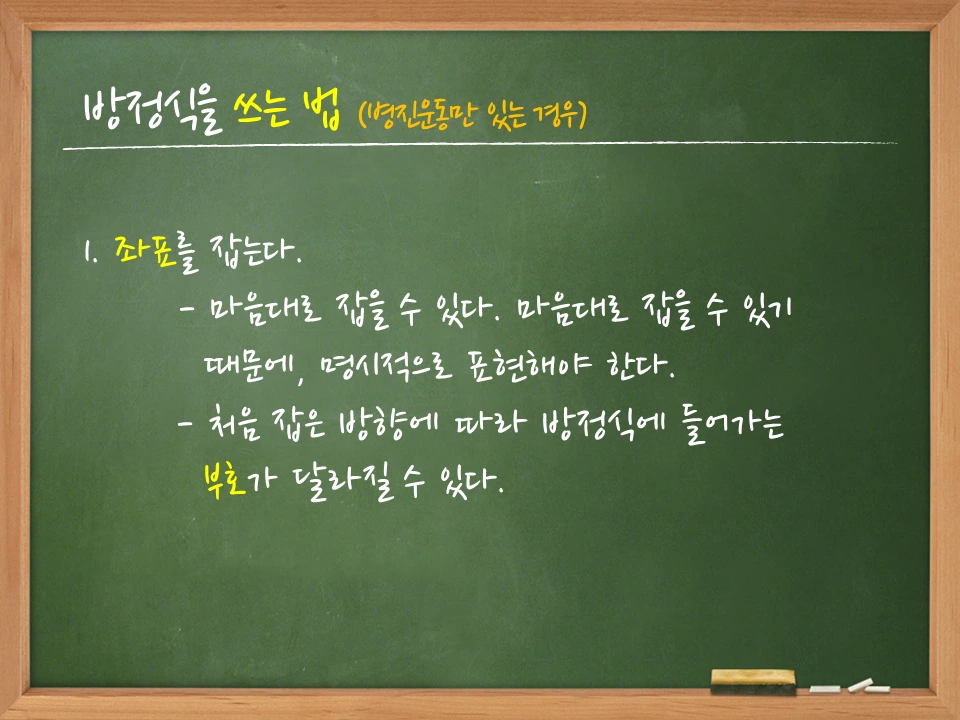 방정식을 쓰는 법 (병진운동만 있는 경우)
1. 좌표를 잡는다.
- 마음대로 잡을 수 있다. 마음대로 잡을 수 있기
때문에, 명시적으로 표현해야 한다.
- 처음 잡은 방향에 따라 방정식에 들어가는
부호가 달라질 수 있다.